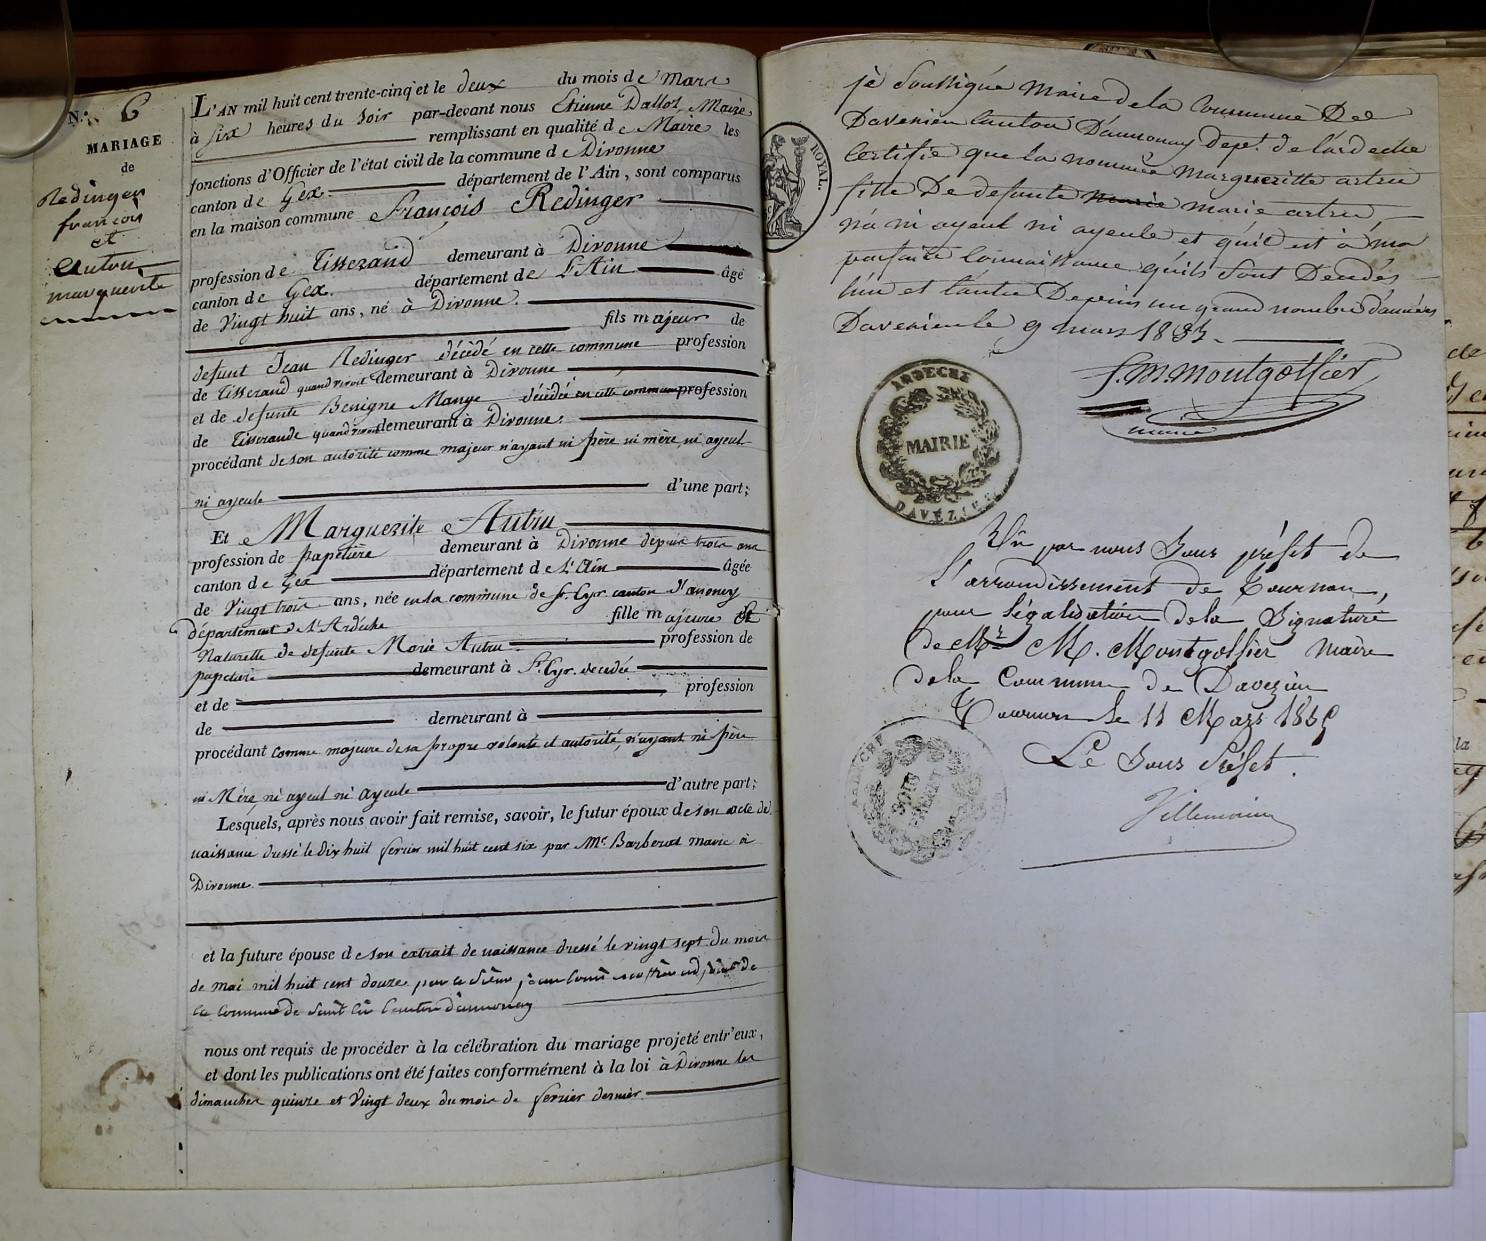 N.° 6
MARIAGE
de
Redinger
françois
et
marguerite
L'AN mil huit cent trente-cinq et le deux du mois de Mars
à six heures du soir par-devant nous Etienne Dalloz, Maire
remplissant en qualité de Maire les
fonctions d'Officier de l'état civil de la commune de Divonne
canton de Gex département de l'Ain, sont comparus
en la maison commune François Redinger
profession de Tisserand demeurant à Divonne
canton de Gex. département de L'Ain âgé
de Vingt huit ans, né à Divonne.
fils majeur de
defunt Jean Redinger décédé en cette commune profession
de Tisserand quand vivoit demeurant à Divonne
et de defunte Benigne Manye décédée en cette commune profession
de Tisserande quand vivoit demeurant à Divonne.
procédant de son autorité comme majeur n'ayant ni père ni mère, ni ayeul
ni ayeule d'une part;
Et Marguerite Autru
profession de papetière demeurant à Divonne depuis trois ans
canton de Gex département de L'Ain âgée
de Vingt trois ans, née en la commune de St. Cyr canton d'anonay
département de L'Ardèche fille majeure et
Naturelle de defunte Marie Autru profession de
papetière demeurant à St. Cyr. decedée
et de profession
de demeurant à
procédant comme majeure de sa propre volonté et autorité, n'ayant ni père
ni Mère ni ayeul ni Ayeule d'autre part;
Lesquels, après nous avoir fait remise, savoir, le futur époux de son acte de
naissance dressé le dix huit fevrier mil huit cent six par Mr. Barberat maire à
Divonne.
et la future épouse de son extrait de naissance dressé le vingt sept du mois
de mai mil huit cent douze par le Sieur jean Louis adjoint de
la commune de Saint Cir Canton d'annonay
nous ont requis de procéder à la célébration du mariage projeté entr'eux,
et dont les publications ont été faites conformément à la loi à Divonne les
dimanches quinze et Vingt deux du mois de fevrier dernier.
ROYAL.
je soussigné Maire de la Commune De
Davezieu Canton D'annonay dept. de lardeche
Certifie que la nommée Margueritte artru
fille De defunte marie marie artru,
n'a ni ayeul ni ayeule et qu'il est à ma
parfaite Connaissance qu'ils Sont Decedés
l'un et l'autre Depuis un grand nombre d'années
Davezieu le 9 mars 1835.
f. m. montgolfier
maire
ARDECHE
MAIRIE
DAVÉZIEU
Vu par nous Sous préfet de
l'arrondissement de Tournon,
pour légalisation de la Signature
de Mr. M. Montgolfier Maire
de la Commune de Davezieu
Tournon le 11 Mars 1835
Le Sous Préfet.
ARDECHE
SOUS